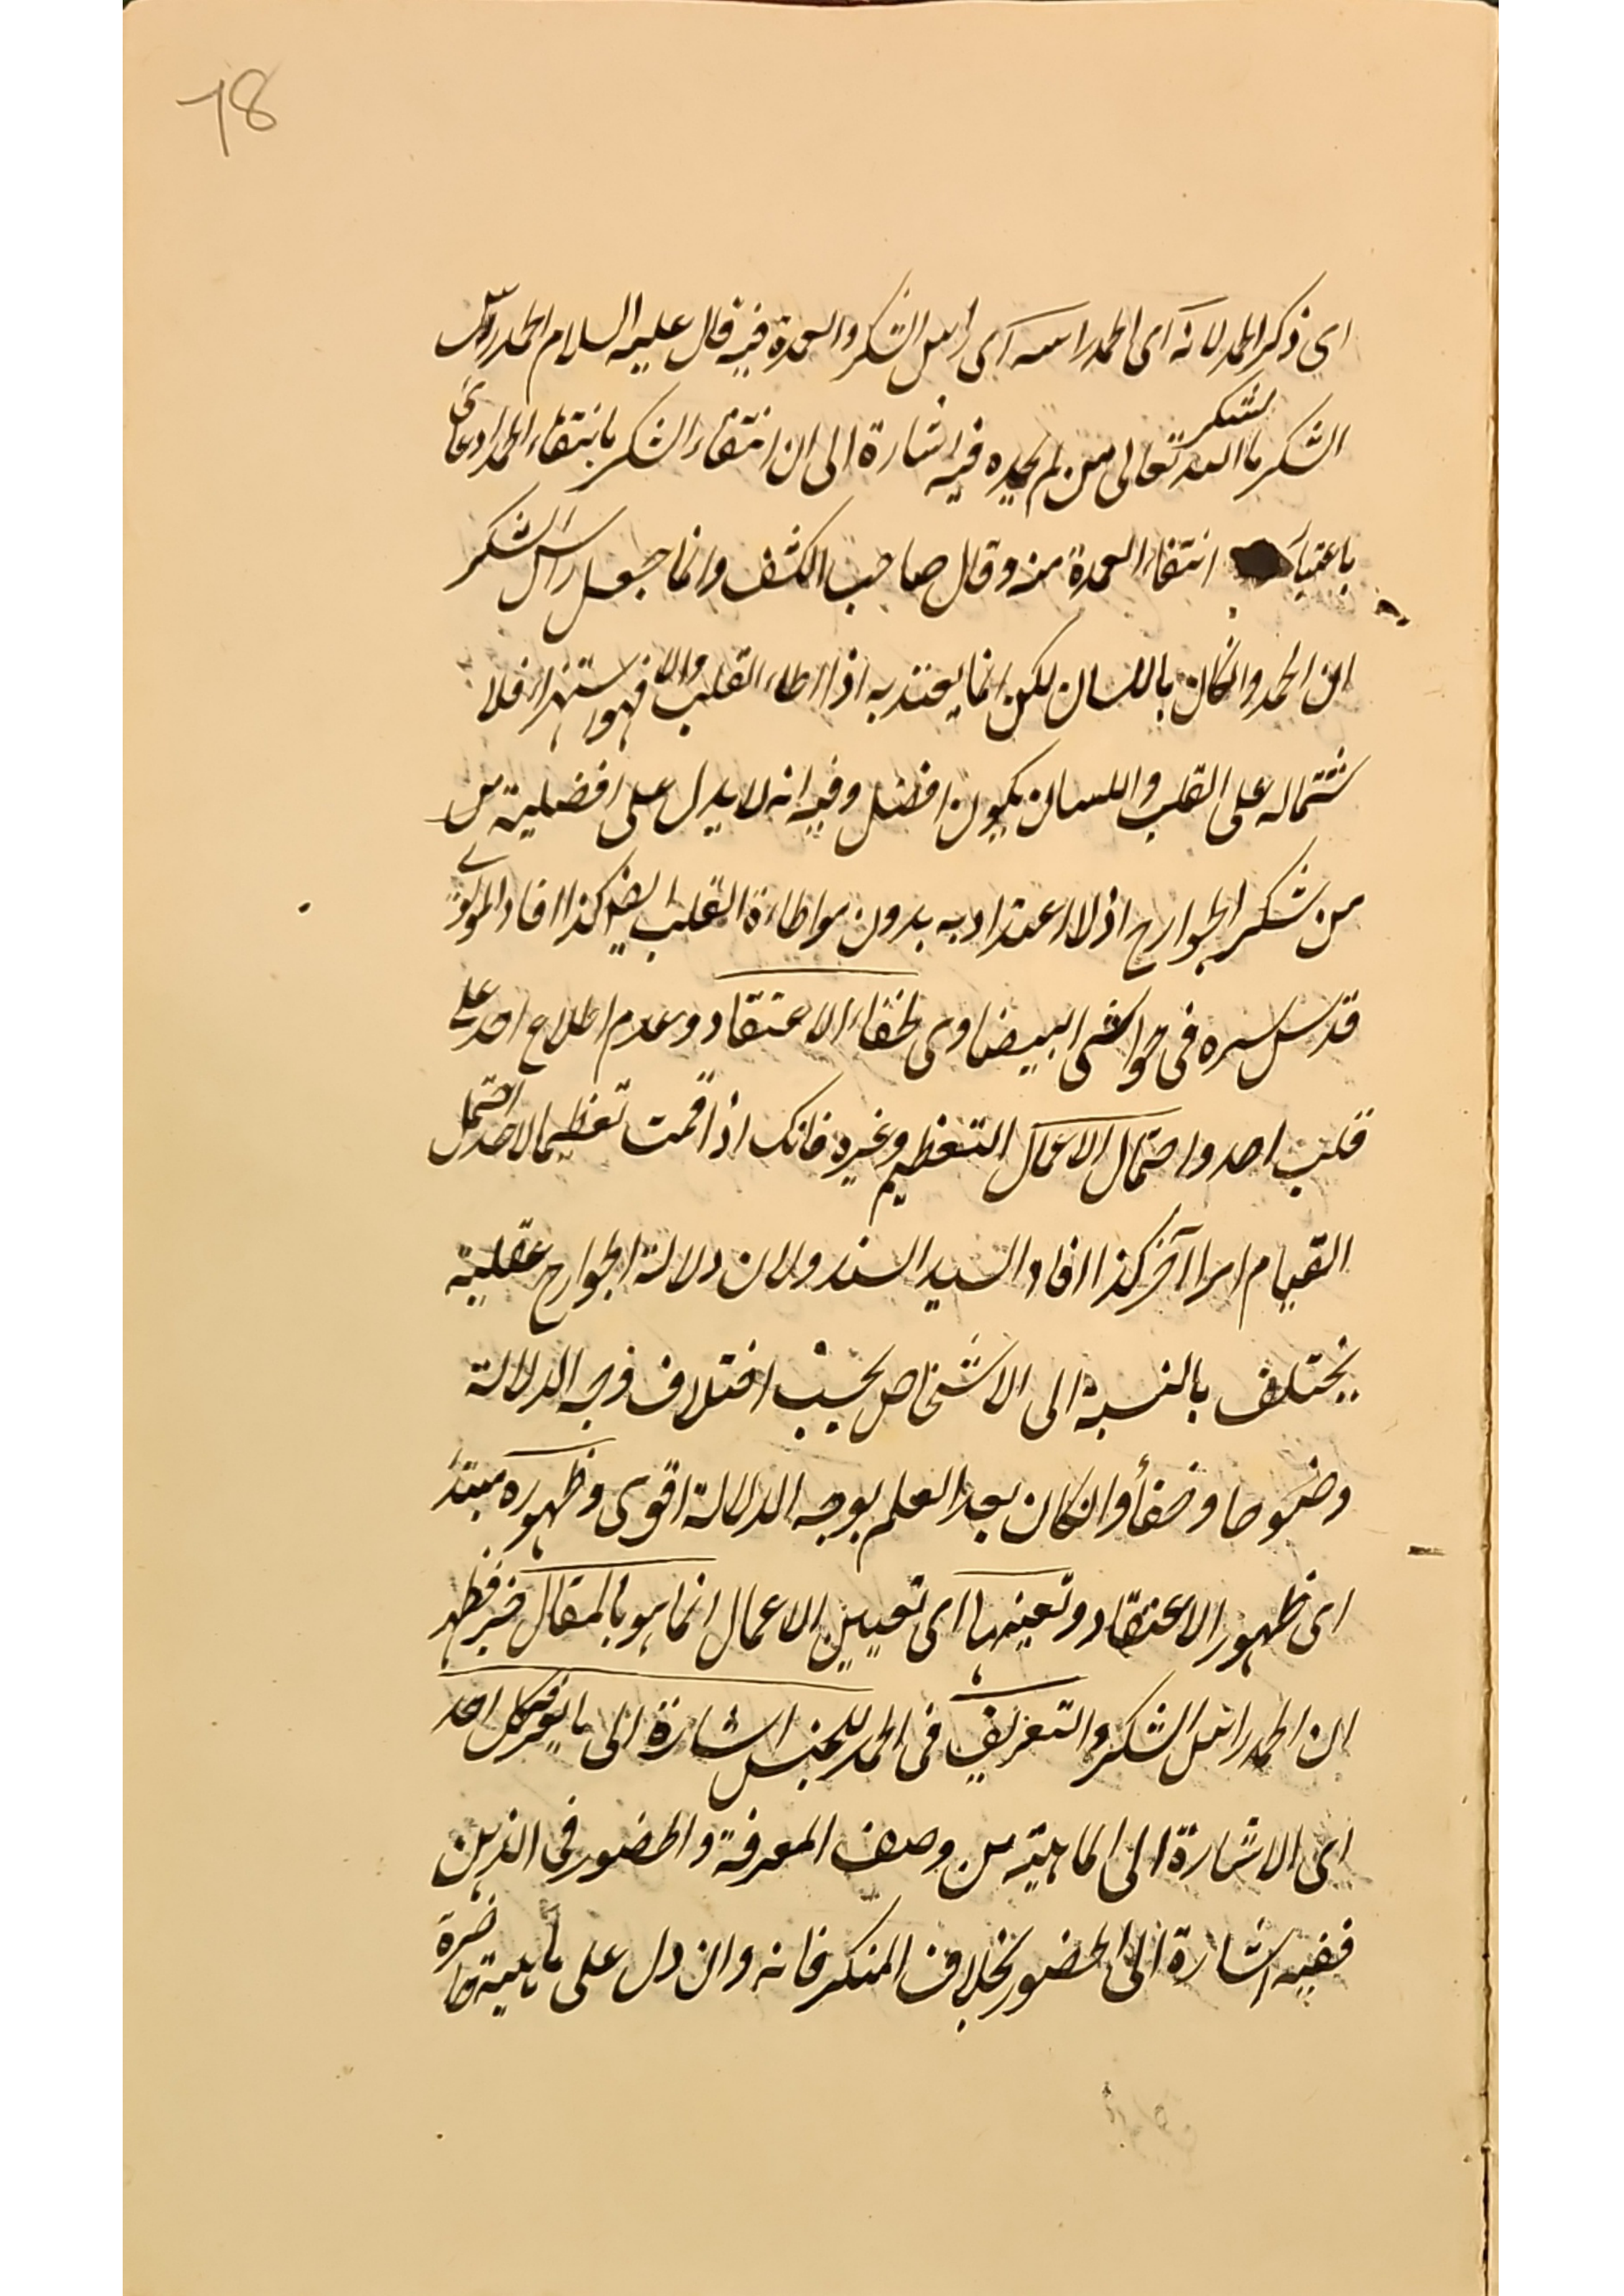 78
اي ذكر الحمد لانه اى الحمد راسه اى راس الشكر والعمدة فيه قال عليه السلام الحمد راس
الشكر ما شكر الله تعالى من لم يحمده فيه اشارة الى ان انتفاء الشكر بانتفاء الحمد ادعائى
باعتبار انتفاء العمدة منه وقال صاحب الكشف وانما جعل راس الشكر
لان الحمد وانكان باللسان لكن انما يعتد به اذا واطاء القلب والا فهو استهزاء فلا
شتماله على القلب واللسان يكون افضل وفيه انه لا يدل على افضلية من
من شكر الجوارح اذ لا اعتداد به بدون مواطاءة القلب ايضا كذا افاد المولوي
قدس سره فى حواشى البيضاوى لخفاء الاعتقاد وعدم اطلاع احد على
قلب احد واحتمال الاعمال التعظيم وغيره فانك اذا قمت تعظيما لاحد احتمل
القيام امرا آخر كذا افاد السيد السند ولان دلالة الجوارح عقلية
يختلف بالنسبة الى الاشخاص بحسب اختلاف وجه الدلالة
وضوحا وخفأ وانكان بعد العلم بوجه الدلالة اقوى وظهوره مبتدأ
اى ظهور الاعتقاد وتعينها اى تعيين الاعمال انما هو بالمقال خبر فظهر
ان الحمد راس الشكر والتعريف فى الحمد للجنس اشارة الى ما يعرفه كل احد
اى الاشارة الى الماهية من وصف المعرفة والحضور فى الذهن
ففيه اشارة الى الحضور بخلاف المنكر فانه وان دل على ماهية حاضرة